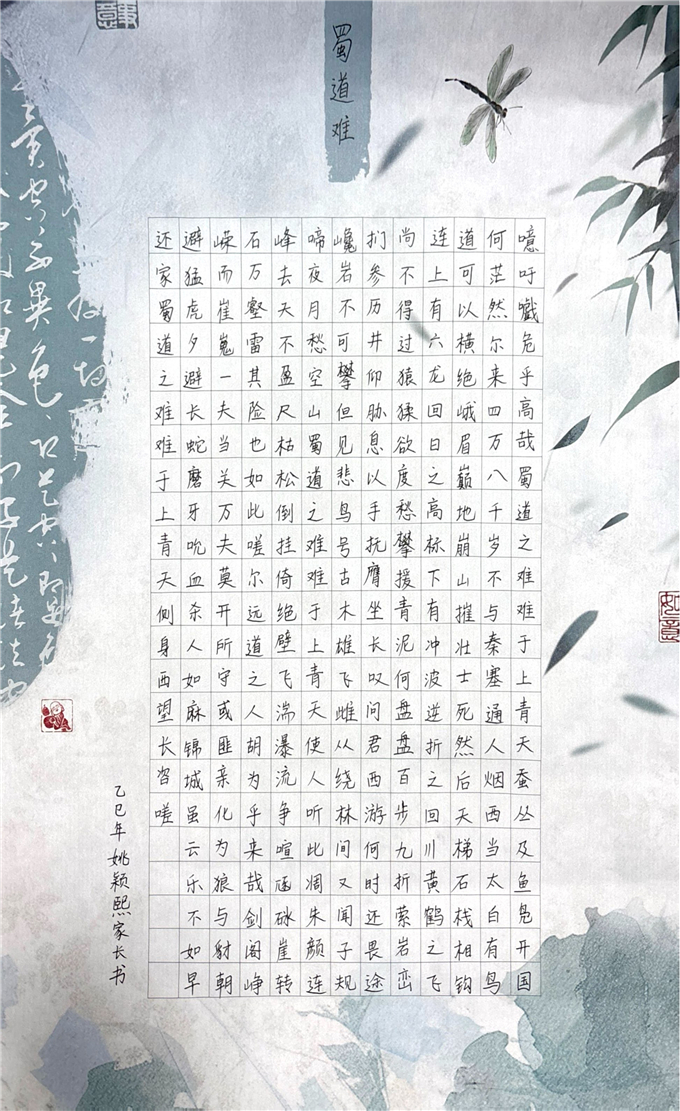 蜀道难
噫吁嚱危乎高哉蜀道之难难于上青天蚕丛及鱼凫开国
何茫然尔来四万八千岁不与秦塞通人烟西当太白有鸟
道可以横绝峨眉巅地崩山摧壮士死然后天梯石栈相钩
连上有六龙回日之高标下有冲波逆折之回川黄鹤之飞
尚不得过猿猱欲度愁攀援青泥何盘盘百步九折萦岩峦
扪参历井仰胁息以手抚膺坐长叹问君西游何时还畏途
巉岩不可攀但见悲鸟号古木雄飞雌从绕林间又闻子规
啼夜月愁空山蜀道之难难于上青天使人听此凋朱颜连
峰去天不盈尺枯松倒挂倚绝壁飞湍瀑流争喧豗砯崖转
石万壑雷其险也如此嗟尔远道之人胡为乎来哉剑阁峥
嵘而崔嵬一夫当关万夫莫开所守或匪亲化为狼与豺朝
避猛虎夕避长蛇磨牙吮血杀人如麻锦城虽云乐不如早
还家蜀道之难难于上青天侧身西望长咨嗟
乙巳年姚颖熙家长书
如意